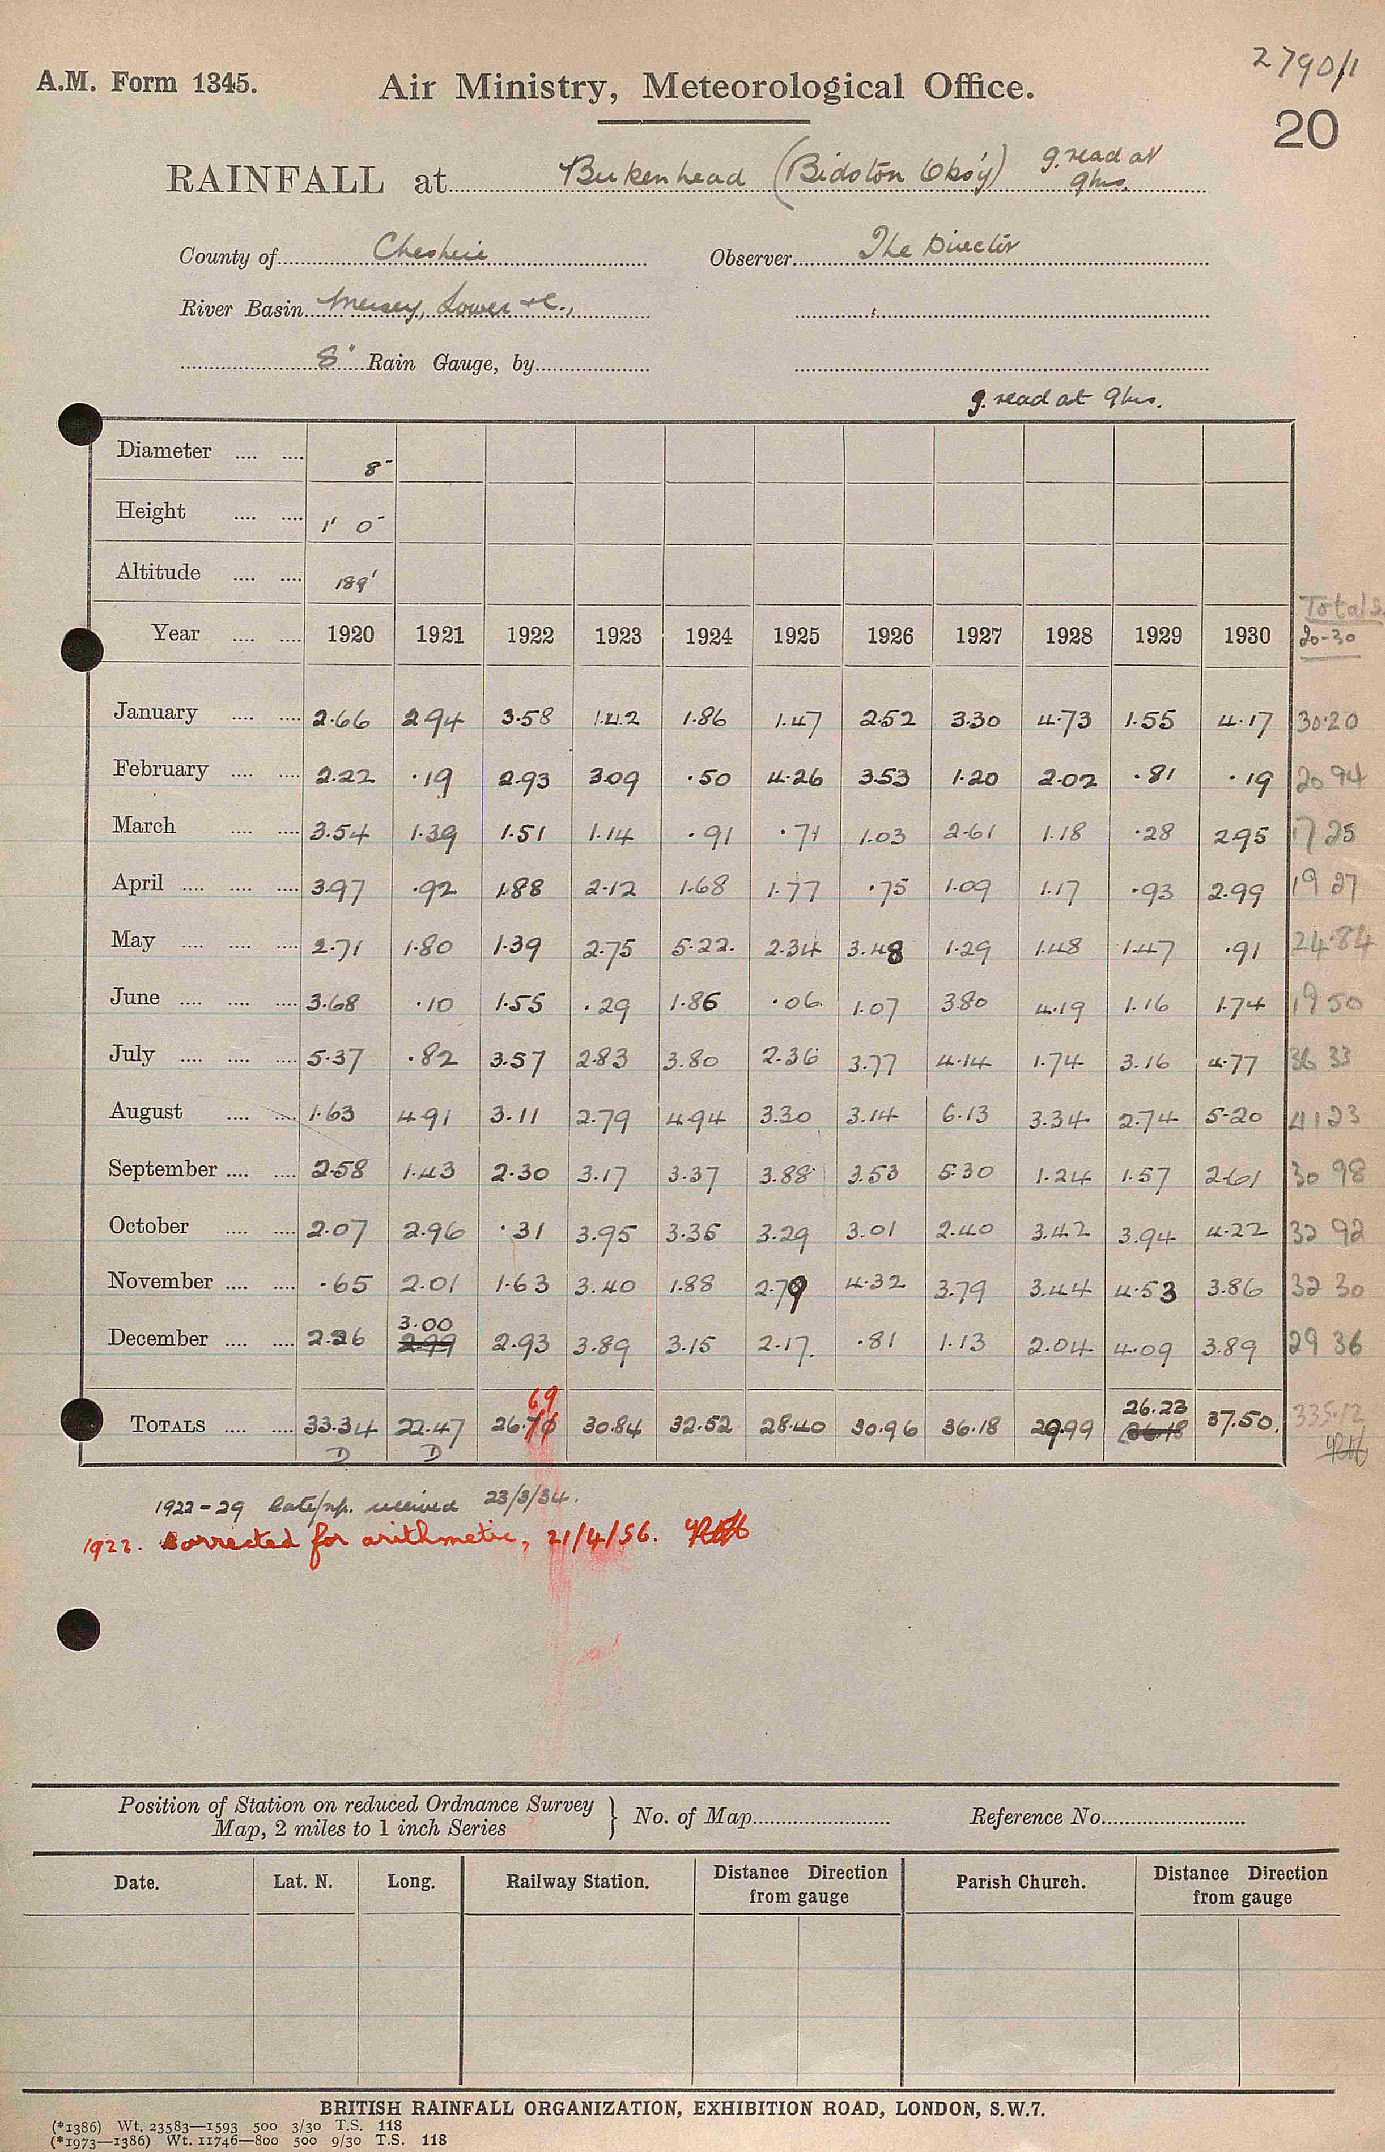 2790/1
A.M. Form 1345. Air Ministry, Meteorological Office.
20
RAINFALL at Birkenhead (Bidston Obs'y) g. read at 9hrs.
County of Cheshire Observer The Director
River Basin Mersey, Lower &c.,
8" Rain Gauge, by
g. read at 9hrs.
Diameter .... .... 8"
Height .... .... 1' 0"
Altitude .... .... 189'
Totals
Year .... .... 1920 1921 1922 1923 1924 1925 1926 1927 1928 1929 1930 20-30
January .... .... 2.66 2.94 3.58 1.42 1.86 1.47 2.52 3.30 4.73 1.55 4.17 30.20
February .... .... 2.22 .19 2.93 3.09 .50 4.26 3.53 1.20 2.02 .81 .19 20 94
March .... .... 3.54 1.39 1.51 1.14 .91 .71 1.03 2.61 1.18 .28 2.95 17 25
April .... .... .... 3.97 .92 1.88 2.12 1.68 1.77 .75 1.09 1.17 .93 2.99 19 27
May .... .... .... 2.71 1.80 1.39 2.75 5.22 2.34 3.48 1.29 1.48 1.47 .91 24.84
June .... .... .... 3.68 .10 1.55 .29 1.86 .06 1.07 3.80 4.19 1.16 1.74 19 50
July .... .... .... 5.37 .82 3.57 2.83 3.80 2.36 3.77 4.14 1.74 3.16 4.77 36 33
August .... .... 1.63 4.91 3.11 2.79 4.94 3.30 3.14 6.13 3.34 2.74 5.20 41 23
September .... .... 2.58 1.43 2.30 3.17 3.37 3.88 3.53 5.30 1.24 1.57 2.61 30 98
October .... .... 2.07 2.96 .31 3.95 3.35 3.29 3.01 2.40 3.42 3.94 4.22 32 92
November .... .... .65 2.01 1.63 3.40 1.88 2.79 4.32 3.79 3.44 4.53 3.86 32 30
3.00
December .... .... 2.26 2.99 2.93 3.89 3.15 2.17 .81 1.13 2.04 4.09 3.89 29 36
69 26.23
TOTALS .... .... 33.34 22.47 26.70 30.84 32.52 28.40 30.96 36.18 29.99 36.18 37.50. 335.12
D D
1922-29 received 23/3/34.
1922. Corrected for arithmetic, 21/4/56.
Position of Station on reduced Ordnance Survey
Map, 2 miles to 1 inch Series } No. of Map Reference No.
Date. Lat. N. Long. Railway Station. Distance Direction from gauge Parish Church. Distance Direction from gauge
BRITISH RAINFALL ORGANIZATION, EXHIBITION ROAD, LONDON, S.W.7.
(*1386) Wt. 23583—1593 500 3/30 T.S. 118
(*1973—1386) Wt. 11746—800 500 9/30 T.S. 118